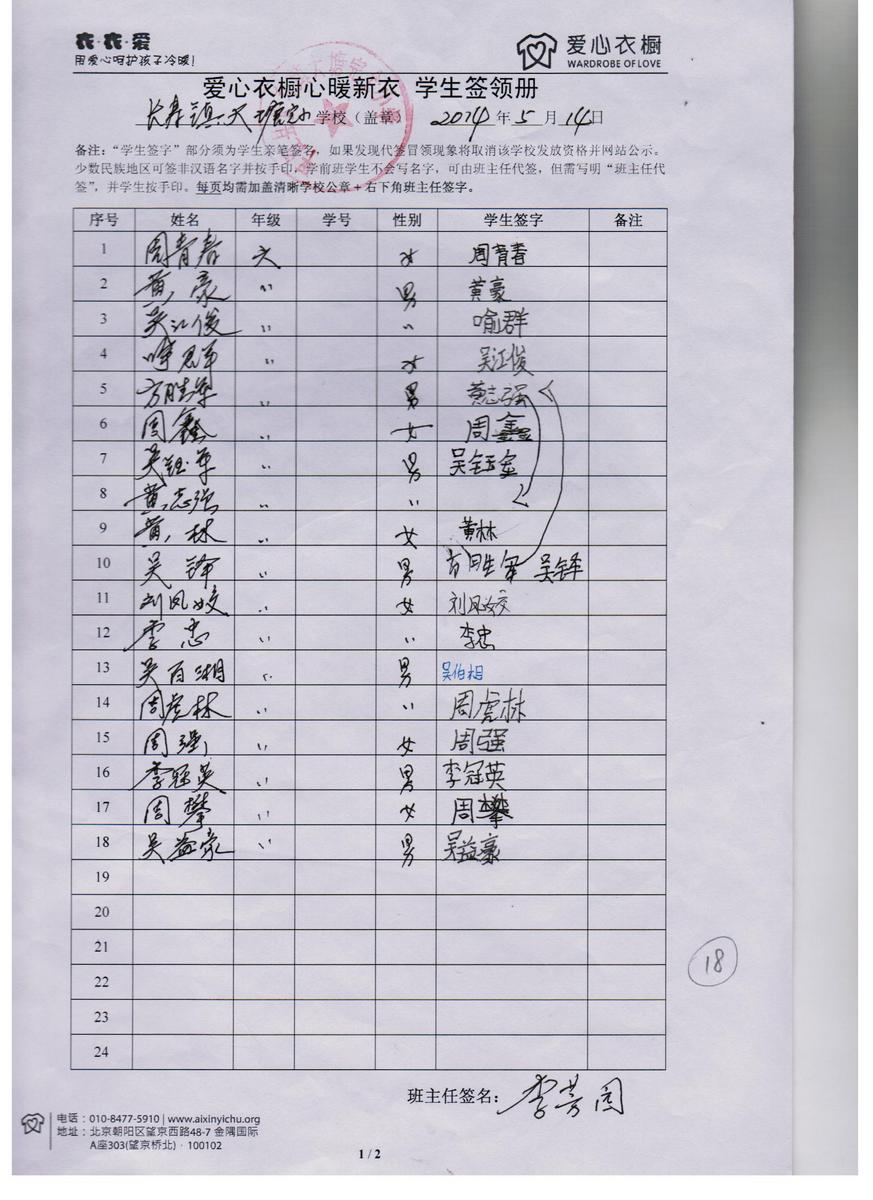 衣·衣·爱
用爱心呵护孩子冷暖!
爱心衣橱
WARDROBE OF LOVE
爱心衣橱心暖新衣 学生签领册
长寿镇 大塘完小 学校（盖章） 2014 年 5 月 14 日
备注：“学生签字”部分须为学生亲笔签名，如果发现代签冒领现象将取消该学校发放资格并网站公示。
少数民族地区可签非汉语名字并按手印，学前班学生不会写名字，可由班主任代签，但需写明“班主任代
签”，并学生按手印。每页均需加盖清晰学校公章+右下角班主任签字。
序号 姓名 年级 学号 性别 学生签字 备注
1 周青春 六 女 周青春
2 黄豪 〃 男 黄豪
3 吴江俊 〃 〃 喻群
4 〃 女 吴江俊
5 方胜军 〃 男 黄志强
6 周鑫 〃 女 周鑫
7 吴钰军 〃 男
8 黄志强 〃 〃
9 黄林 〃 女 黄林
10 吴锋 〃 男 吴铎
11 刘凤姣 〃 女 刘凤姣
12 李忠 〃 〃 李忠
13 吴百湘 〃 男 吴伯相
14 周虎林 〃 〃 周虎林
15 周强 〃 女 周强
16 李冠英 〃 男 李冠英
17 周攀 〃 女 周攀
18 吴益豪 〃 男 吴益豪
19
20
21
22
23
24
18
班主任签名：李芳园
电话：010-8477-5910 | www.aixinyichu.org
地址：北京朝阳区望京西路48-7 金隅国际
A座303(望京桥北) · 100102
1 / 2